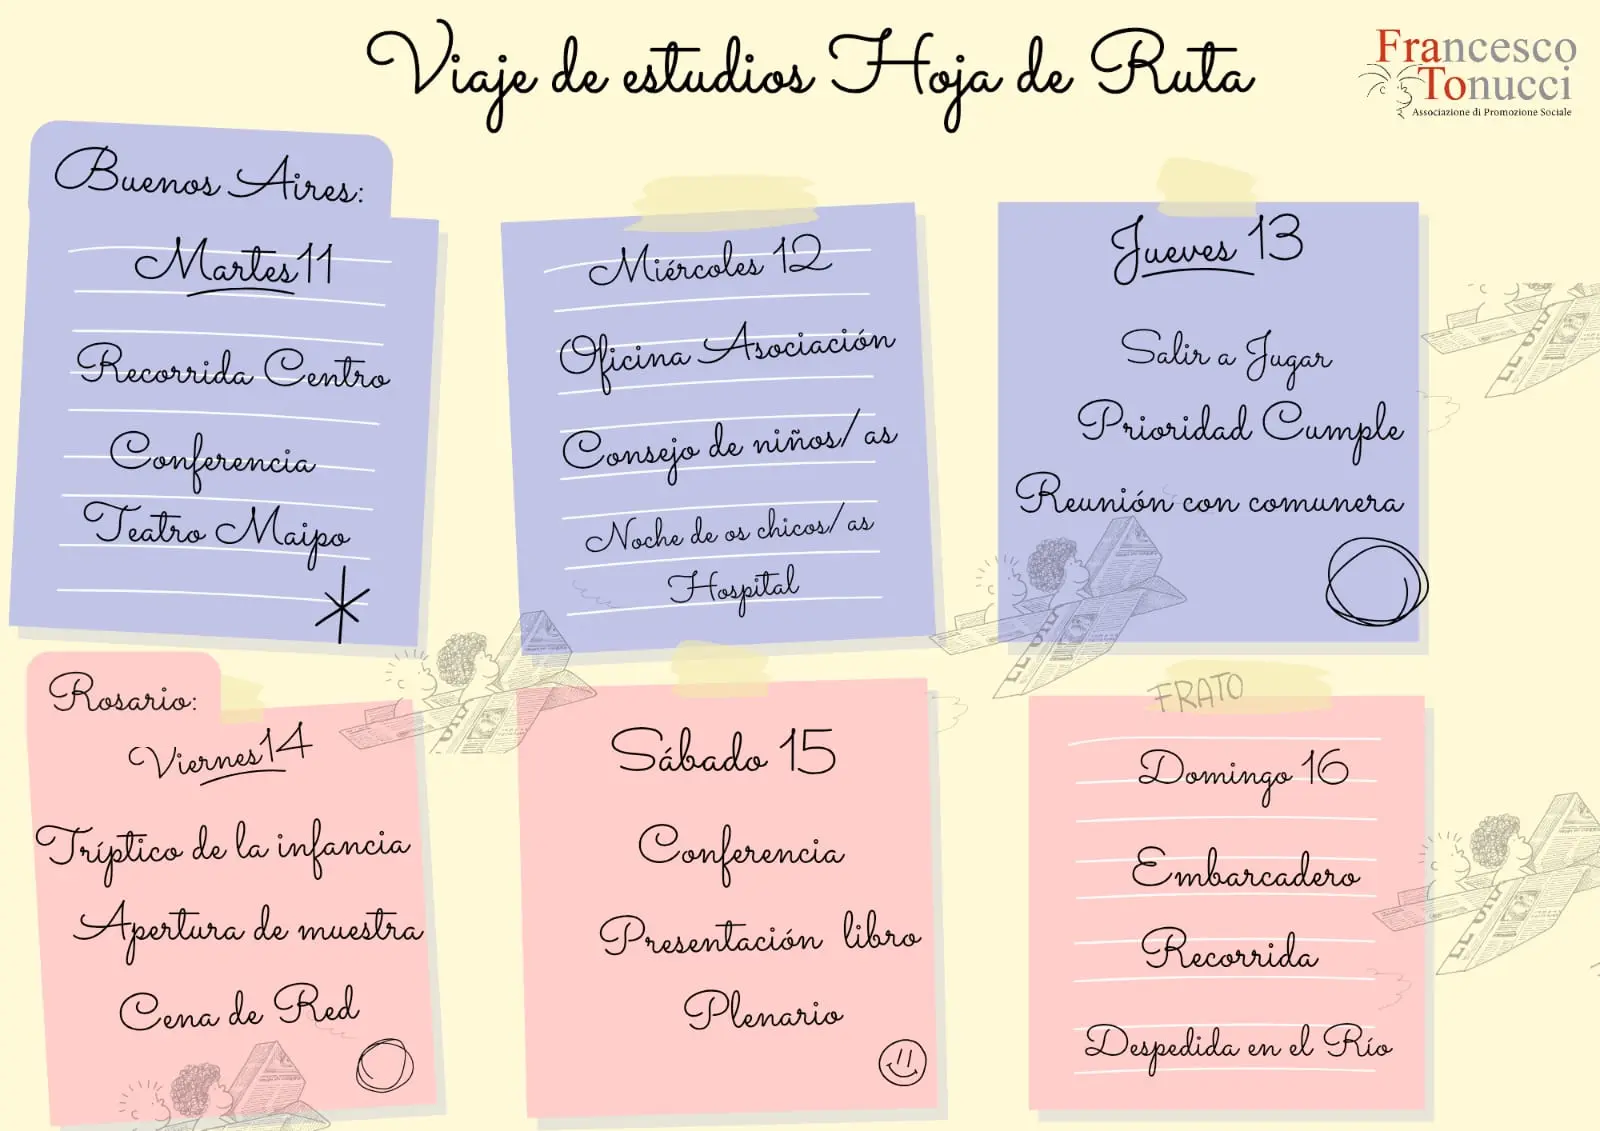 Viaje de estudios Hoja de Ruta
Francesco
Tonucci
Associazione di Promozione Sociale
Buenos Aires:
Martes 11
Recorrida Centro
Conferencia
Teatro Maipo
Miércoles 12
Oficina Asociación
Consejo de niños/as
Noche de os chicos/as
Hospital
Jueves 13
Salir a Jugar
Prioridad Cumple
Reunión con comunera
Rosario:
Viernes 14
Tríptico de la infancia
Apertura de muestra
Cena de Red
Sábado 15
Conferencia
Presentación libro
Plenario
FRATO
Domingo 16
Embarcadero
Recorrida
Despedida en el Río